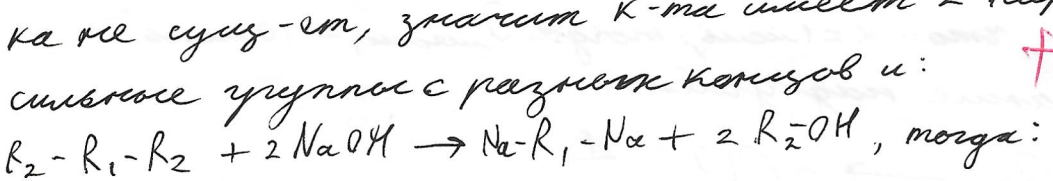 ка не сущ-ет, значит к-та имеет 2 кар
сильные группы с разных концов и:
R₂ - R₁ - R₂ + 2 NaOH → Na-R₁-Na + 2 R₂-OH, тогда: